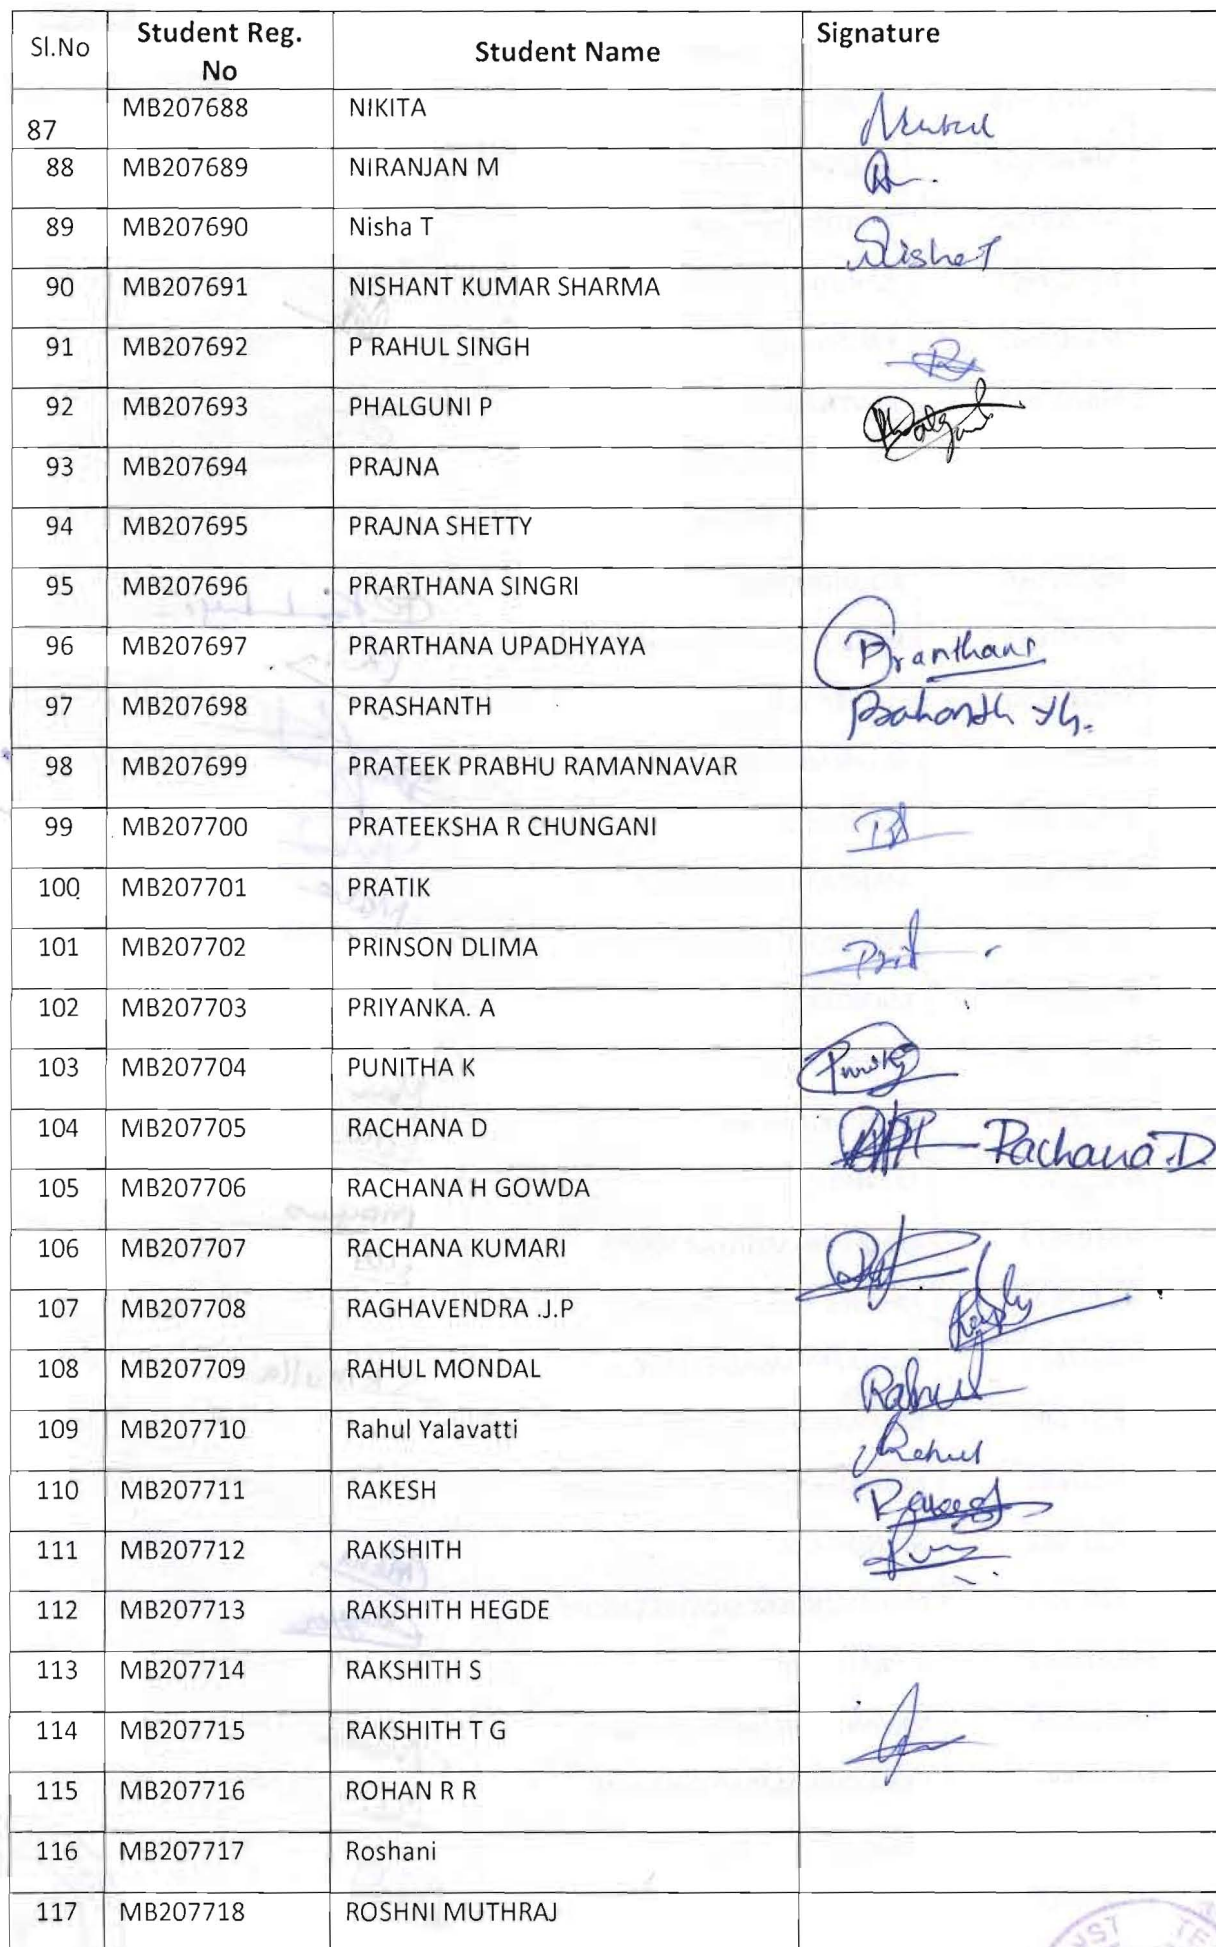 Sl.No Student Reg. No Student Name Signature
87 MB207688 NIKITA
88 MB207689 NIRANJAN M
89 MB207690 Nisha T Nisha T
90 MB207691 NISHANT KUMAR SHARMA
91 MB207692 P RAHUL SINGH
92 MB207693 PHALGUNI P
93 MB207694 PRAJNA
94 MB207695 PRAJNA SHETTY
95 MB207696 PRARTHANA SINGRI
96 MB207697 PRARTHANA UPADHYAYA
97 MB207698 PRASHANTH
98 MB207699 PRATEEK PRABHU RAMANNAVAR
99 MB207700 PRATEEKSHA R CHUNGANI
100 MB207701 PRATIK
101 MB207702 PRINSON DLIMA
102 MB207703 PRIYANKA. A
103 MB207704 PUNITHA K
104 MB207705 RACHANA D Rachana.D
105 MB207706 RACHANA H GOWDA
106 MB207707 RACHANA KUMARI
107 MB207708 RAGHAVENDRA .J.P
108 MB207709 RAHUL MONDAL Rahul
109 MB207710 Rahul Yalavatti Rahul
110 MB207711 RAKESH
111 MB207712 RAKSHITH
112 MB207713 RAKSHITH HEGDE
113 MB207714 RAKSHITH S
114 MB207715 RAKSHITH T G
115 MB207716 ROHAN R R
116 MB207717 Roshani
117 MB207718 ROSHNI MUTHRAJ